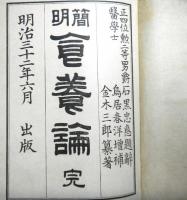 正四位勳二等男爵石黑忠悳題辭
醫學士
鳥居春洋增補
金木三郎纂著
簡明
食養論
完
明治三十二年六月 出版